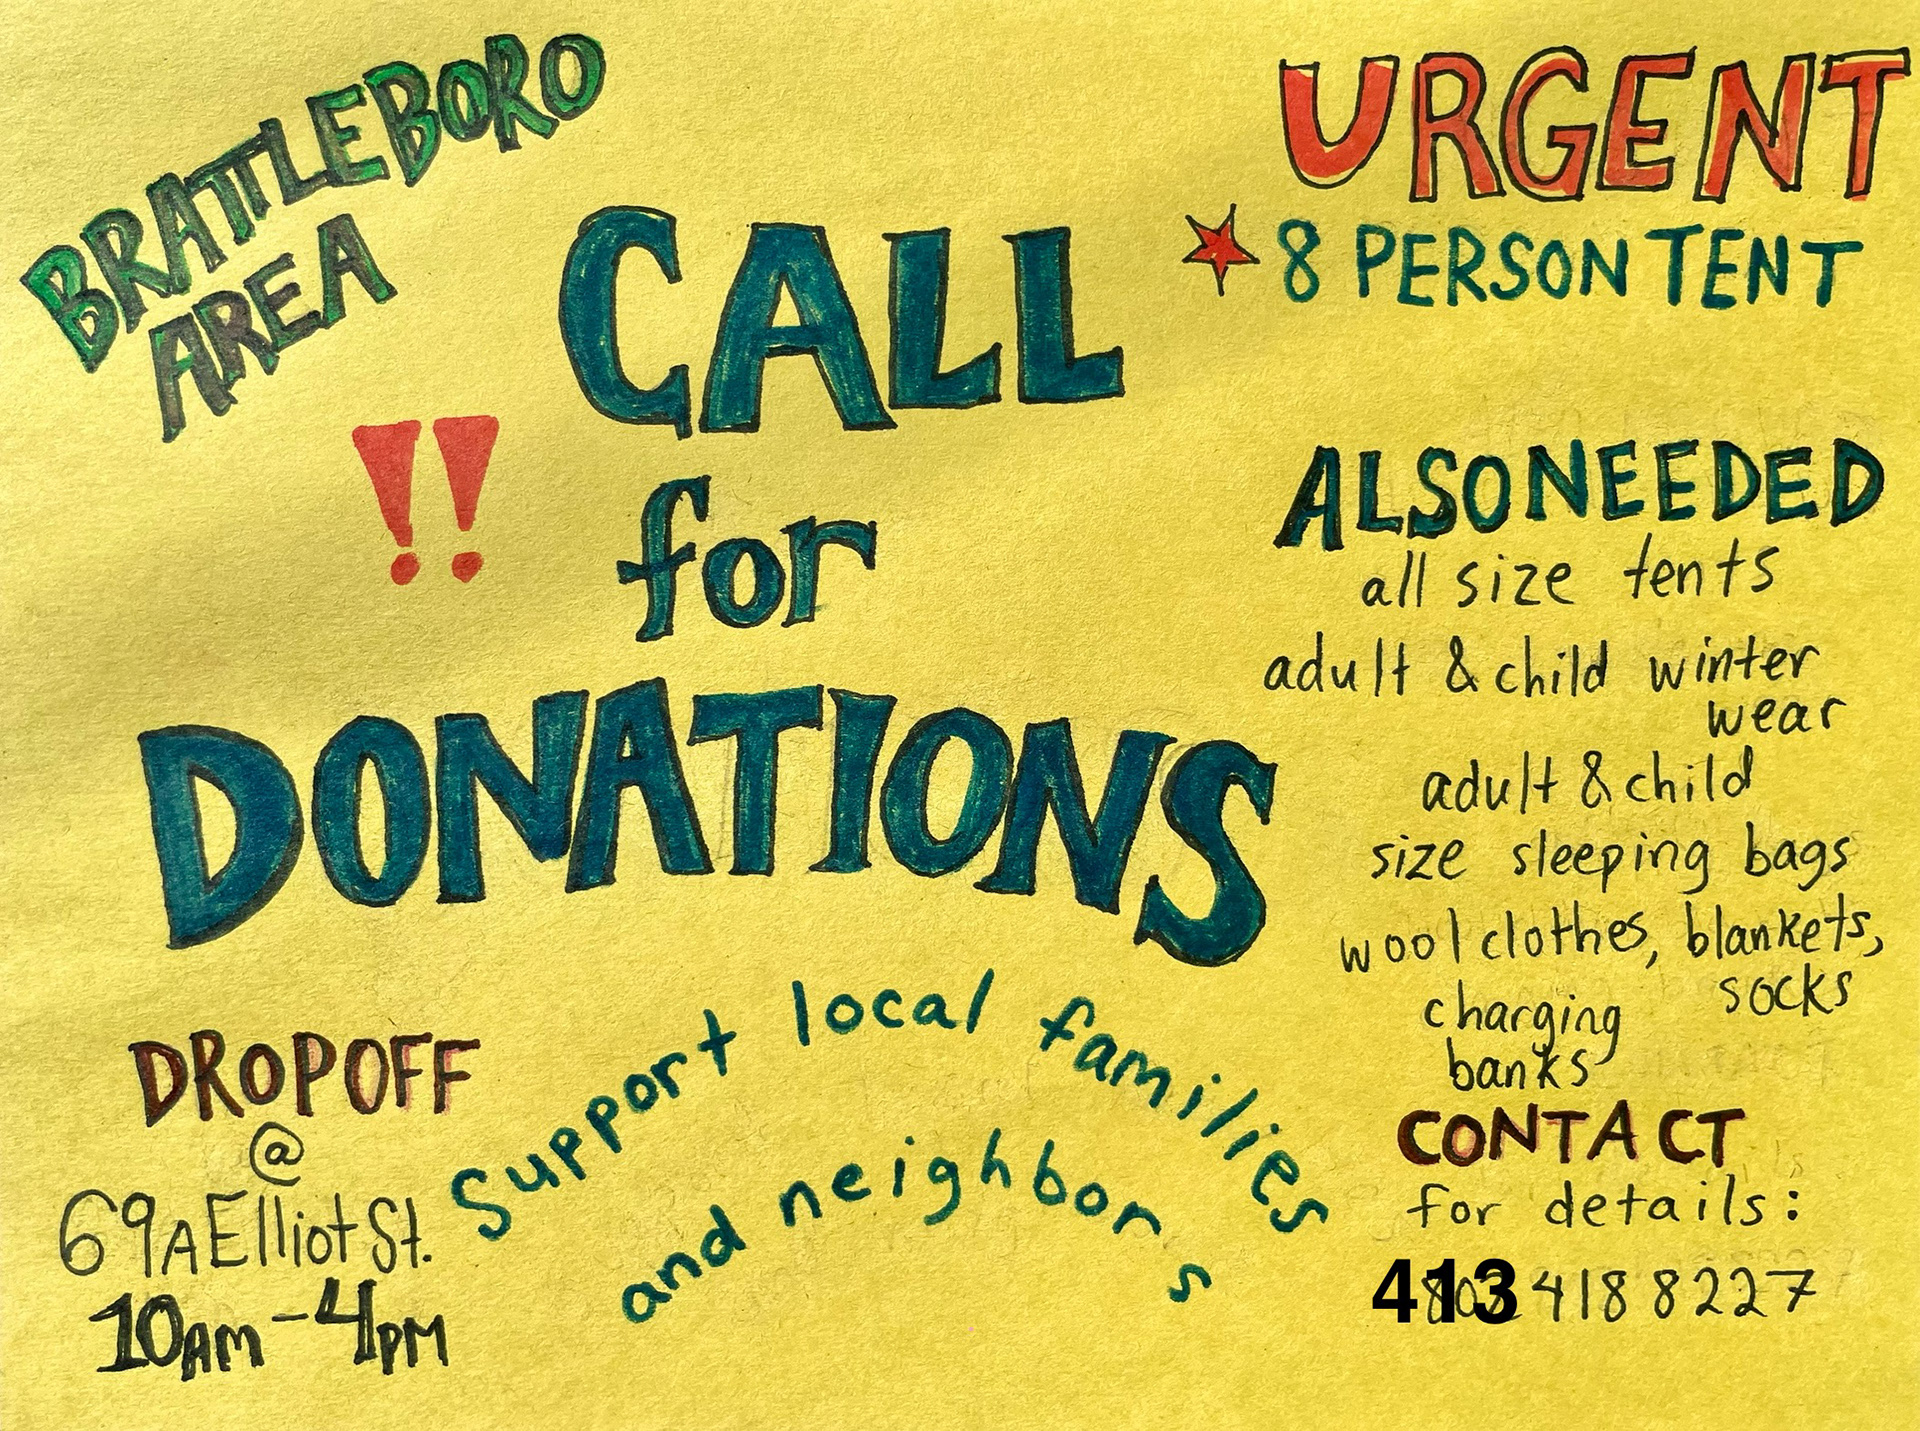 BRATTLEBORO
AREA
!! CALL
for
DONATIONS
Support local families
and neighbors
DROPOFF
@
69A Elliot St.
10AM-4PM
URGENT
8 PERSON TENT
ALSO NEEDED
all size tents
adult & child winter
wear
adult & child
size sleeping bags
wool clothes, blankets,
socks
charging
banks
CONTACT
for details:
413 418 8227